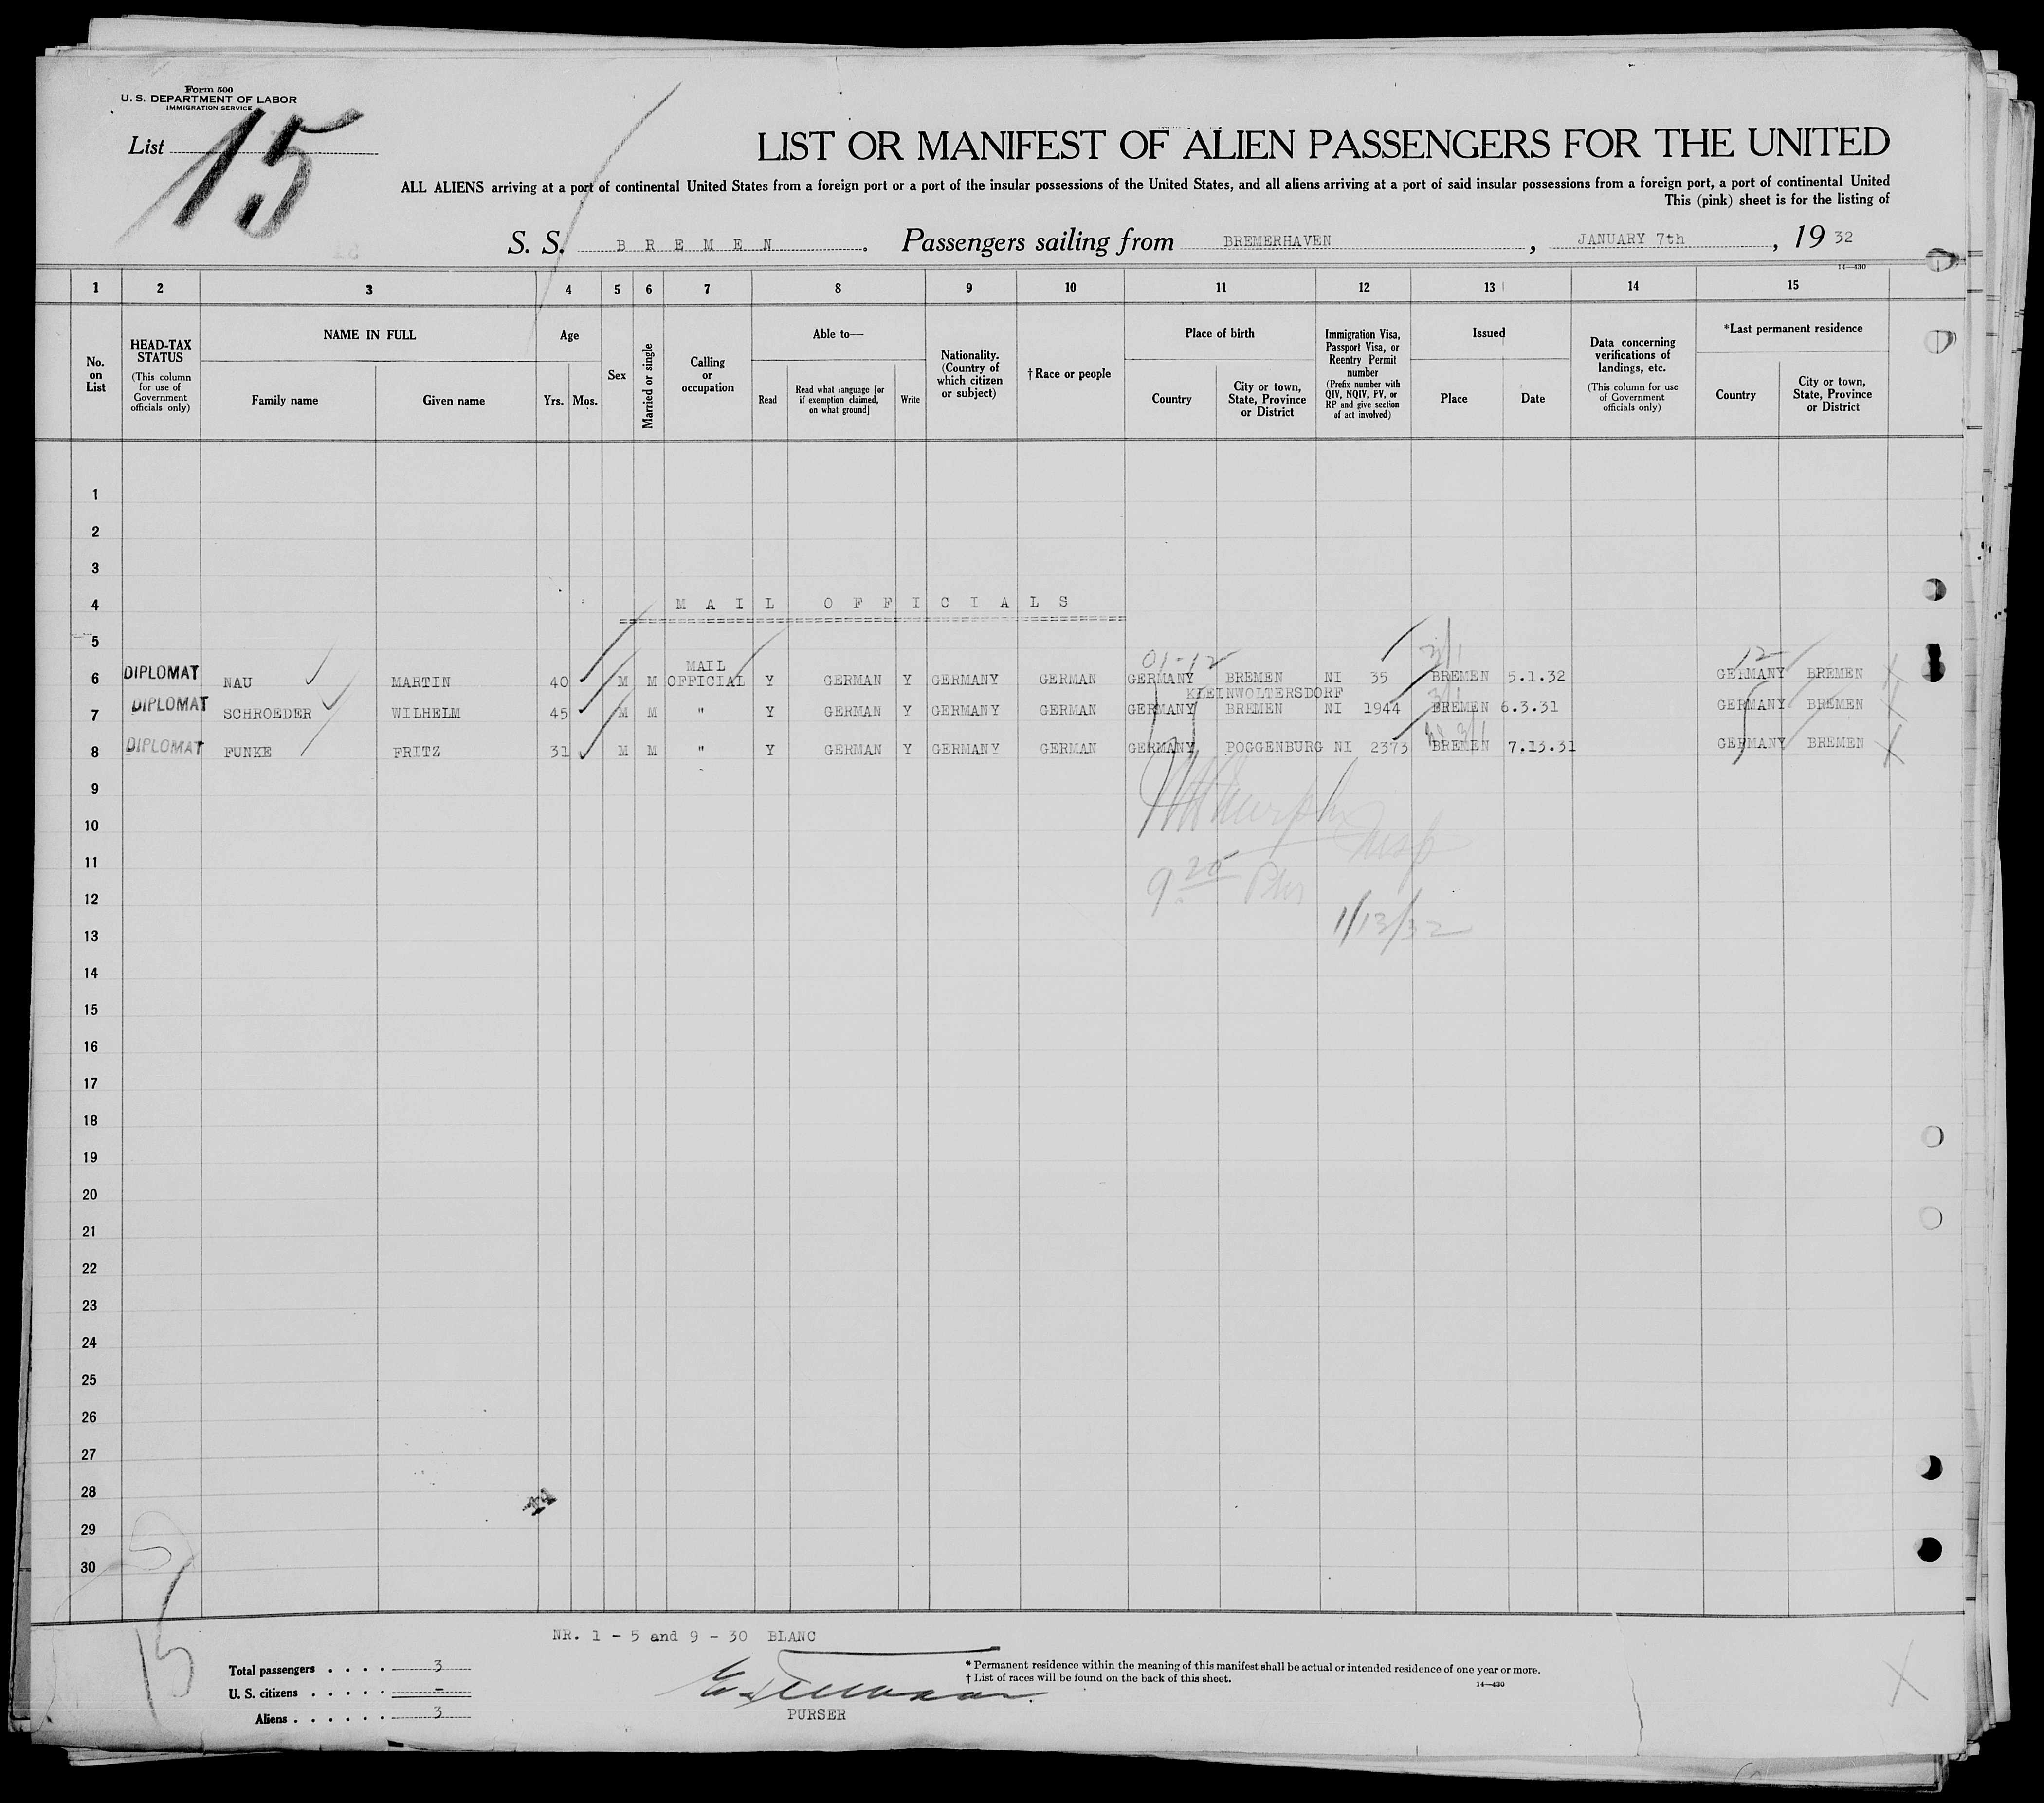 Form 500
U. S. DEPARTMENT OF LABOR
IMMIGRATION SERVICE
List 15
LIST OR MANIFEST OF ALIEN PASSENGERS FOR THE UNITED
ALL ALIENS arriving at a port of continental United States from a foreign port or a port of the insular possessions of the United States, and all aliens arriving at a port of said insular possessions from a foreign port, a port of continental United
This (pink) sheet is for the listing of
S. S. BREMEN. Passengers sailing from BREMERHAVEN, JANUARY 7th, 19 32
14—430
1 2 3 4 5 6 7 8 9 10 11 12 13 14 15
No. on List
HEAD-TAX STATUS
(This column for use of Government officials only)
NAME IN FULL
Family name
Given name
Age
Yrs. Mos.
Sex
Married or single
Calling or occupation
Able to—
Read
Read what language [or if exemption claimed, on what ground]
Write
Nationality. (Country of which citizen or subject)
†Race or people
Place of birth
Country
City or town, State, Province or District
Immigration Visa, Passport Visa, or Reentry Permit number
(Prefix number with QIV, NQIV, PV, or RP and give section of act involved)
Issued
Place
Date
Data concerning verifications of landings, etc.
(This column for use of Government officials only)
*Last permanent residence
Country
City or town, State, Province or District
1
2
3
4 MAIL OFFICIALS
5
01-12 12
MAIL
DIPLOMAT 6 NAU MARTIN 40 M M OFFICIAL Y GERMAN Y GERMANY GERMAN GERMANY BREMEN NI 35 BREMEN 5.1.32 GERMANY BREMEN
KLEINWOLTERSDORF
DIPLOMAT 7 SCHROEDER WILHELM 45 M M " Y GERMAN Y GERMANY GERMAN GERMANY BREMEN NI 1944 BREMEN 6.3.31 GERMANY BREMEN
DIPLOMAT 8 FUNKE FRITZ 31 M M " Y GERMAN Y GERMANY GERMAN GERMANY POGGENBURG NI 2373 BREMEN 7.13.31 GERMANY BREMEN
9
10 Murphy Insp
11
12 9 20 Pm
13 1/13/32
14
15
16
17
18
19
20
21
22
23
24
25
26
27
28
29
30
15
NR. 1 - 5 and 9 - 30 BLANC
Total passengers . . . . 3
U. S. citizens . . . . . -
Aliens . . . . . . 3
PURSER
* Permanent residence within the meaning of this manifest shall be actual or intended residence of one year or more.
† List of races will be found on the back of this sheet.
14—430